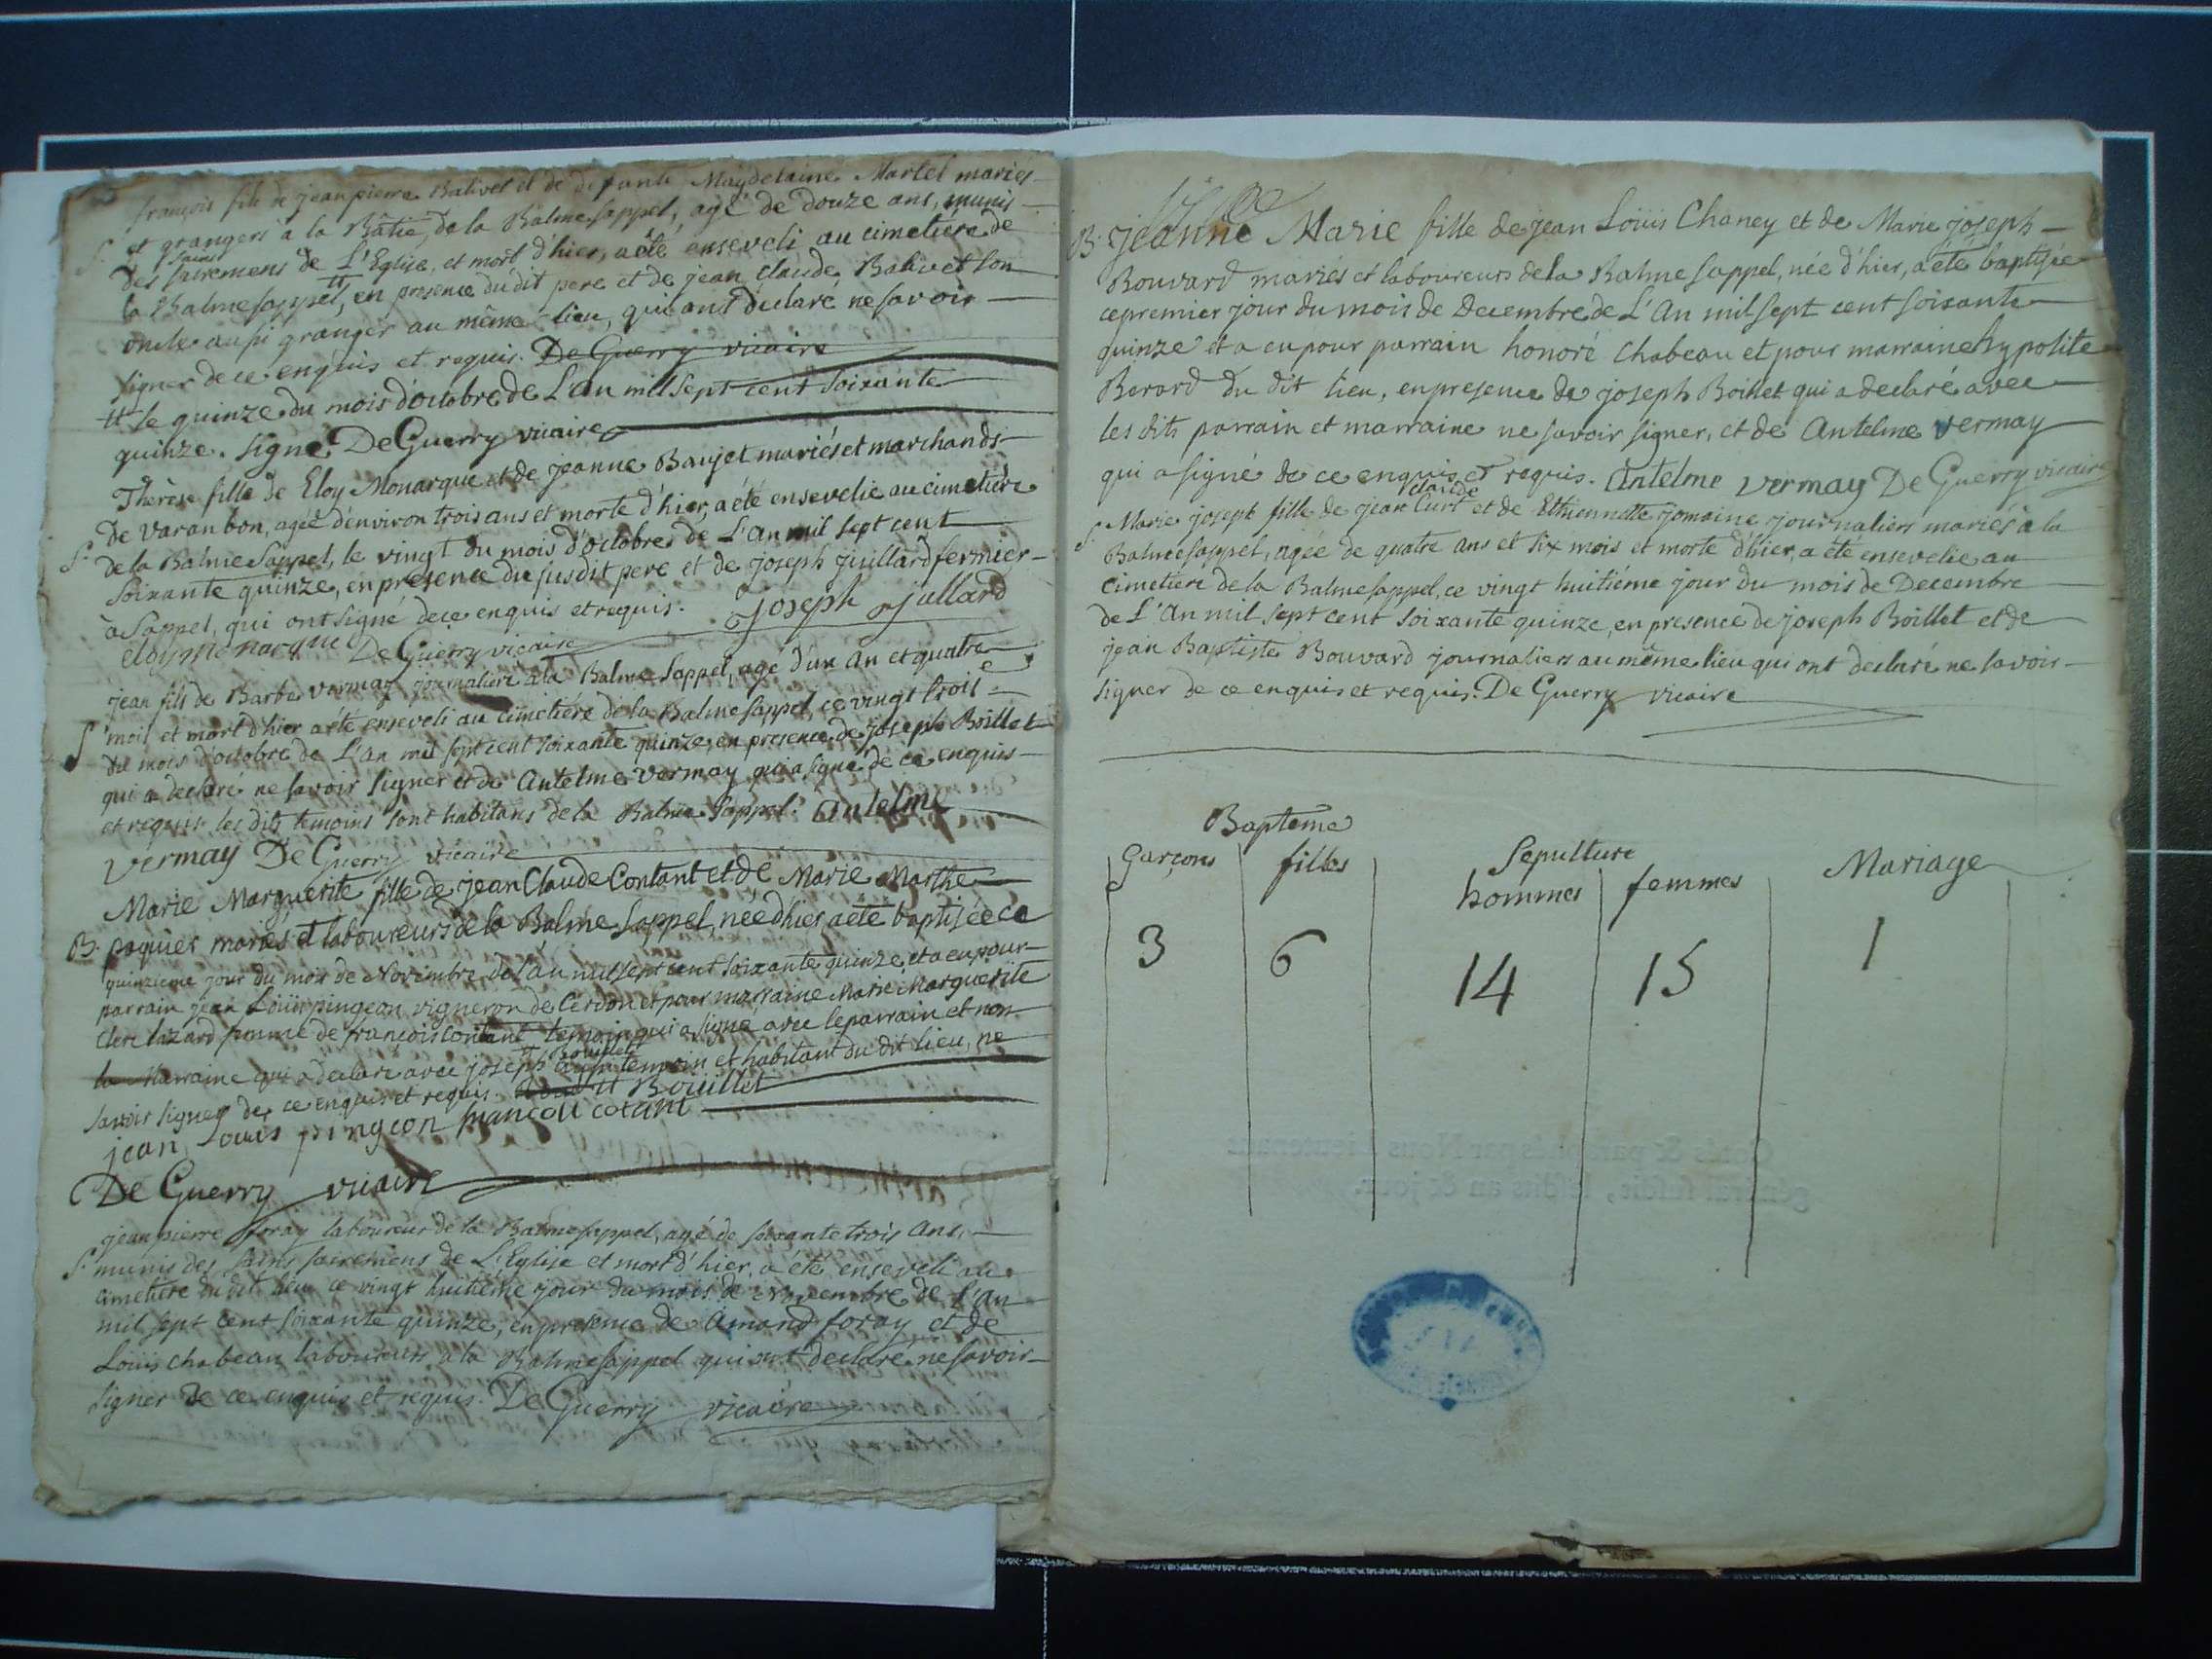 françois fils de jean pierre Balivet et de defunte Magdelaine Martel mariés
S. et grangers à la Bâtie, de la Balme Sappel, agé de douze ans, munis
des saints sacremens de L'Eglise, et mort d'hier, a été enseveli au cimetiére de
la Balme sappel tt, en presence du dit pere et de jean claude Balivet son
oncle aussi granger au même lieu, qui ont déclaré ne savoir
signer de ce enquis et requis. De Guerry vicaire
tt le quinze du mois d'octobre de L'an mil sept cent soixante
quinze. signé De Guerry vicaire
Thérèse fille de Eloy Monarque et de jeanne Baujet mariés et marchands
de varanbon, agée d'environ trois ans et morte d'hier, a été ensevelie au cimetiére
S. de la Balme Sappel, le vingt du mois d'octobre de L'an mil sept cent
soixante quinze, en presence du susdit pere et de joseph juillard fermier
à Sappel, qui ont signé de ce enquis et requis. joseph jullard
eloy monarque De Guerry vicaire
jean fils de Barbe vermay journaliere à la Balme Sappel, agé d'un an et quatre
S. mois et mort d'hier a été enseveli au cimetiére de la Balme sappel, ce vingt trois
du mois d'octobre de L'an mil sept cent soixante quinze, en presence de joseph Boillet
qui a declaré ne savoir signer et de Antelme vermay qui a signé de ce enquis
et requis les dits temoins sont habitans de la Balme Sappel. antelme
vermay De Guerry vicaire
Marie Marguerite fille de jean Claude Contant et de Marie Marthe
B. paquier mariés et laboureurs de la Balme Sappel, née d'hier a été baptisée ce
quinzieme jour du mois de Novembre de L'an mil sept cent soixante quinze et a eu pour
parrain jean Loüis pingeon vigneron de Cerdon et pour marraine Marie Marguerite
Clerc lazard femme de françois Contant temoin qui a signé avec le parrain et non
la marraine qui a declaré avec joseph tt Bouillet aussi temoin et habitant du dit lieu, ne
savoir signer de ce enquis et requis. tt Boüillet
jean Louis pingeon françoit cotant
De Guerry vicaire
jean pierre foray laboureur de la Balme sappel, agé de soixante trois ans,
S. munis des saints sacremens de L'Eglise et mort d'hier, a été enseveli au
cimetiere du dit lieu ce vingt huitiéme jour du mois de Novembre de L'an
mil sept cent soixante quinze, en presence de Amand foray et de
Loüis chabeau laboureurs à la Balme sappel qui ont declaré ne savoir
signer de ce enquis et requis. De Guerry vicaire
B. jeanne Marie fille de jean Loüis Chaney et de Marie joseph
Bouvard mariés et laboureurs de la Balme sappel, née d'hier, a été baptisée
ce premier jour du mois de Decembre de L'An mil sept cent soixante
quinze et a eu pour parrain honoré Chabeau et pour marraine hypolite
Berard du dit lieu, en presence de joseph Boillet qui a declaré avec
les dits parrain et marraine ne savoir signer, et de Antelme vermay
qui a signé de ce enquis et requis. Antelme vermay De Guerry vicaire
S. Marie josept fille de jean claude Curt et de Ethiennette jomaine journaliers mariés à la
Balme sappel, agée de quatre ans et six mois et morte d'hier, a été ensevelie au
cimetiere de la Balme sappel, ce vingt huitiéme jour du mois de Decembre
de L'An mil sept cent soixante quinze, en presence de joseph Boillet et de
jean Baptiste Bouvard journaliers au même lieu qui ont declaré ne savoir
signer de ce enquis et requis. De Guerry vicaire
Bapteme
Garçons filles
Sepulture
hommes femmes
Mariage
3 6 14 15 1